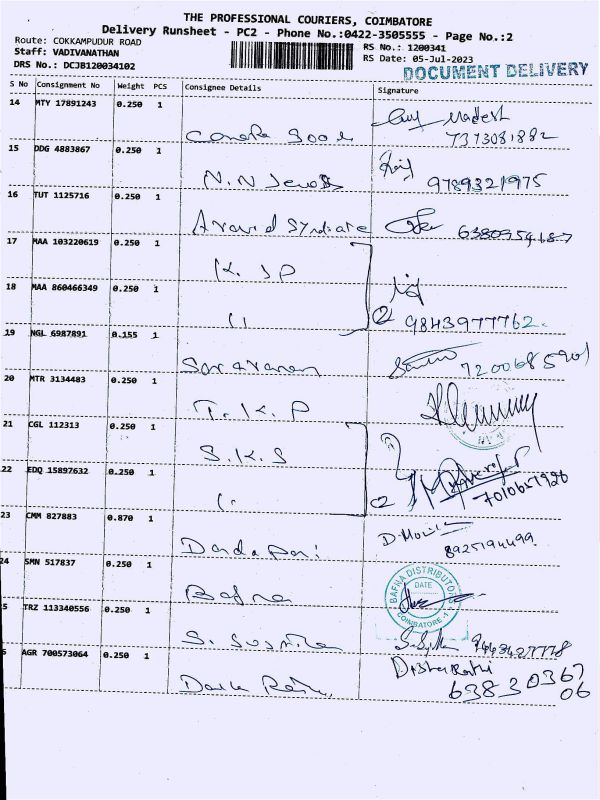 THE PROFESSIONAL COURIERS, COIMBATORE
Delivery Runsheet - PC2 - Phone No.:0422-3505555 - Page No.:2
Route: COKKAMPUDUR ROAD
RS No.: 1200341
Staff: VADIVANATHAN
RS Date: 05-Jul-2023
DRS No.: DCJB120034102
DOCUMENT DELIVERY
S No Consignment No Weight PCS Consignee Details Signature
14 MTY 17891243 0.250 1
7373081882
15 DDG 4883867 0.250 1
N.N
9789321975
16 TUT 1125716 0.250 1
Aravind Syndicate
17 MAA 103220619 0.250 1
K. J P
18 MAA 860466349 0.250 1
11
2 9843977762
19 NGL 6987891 0.155 1
Saravanan
7200685901
20 MTR 3134483 0.250 1
T. K. P
21 CGL 112313 0.250 1
S.K.S
22 EDQ 15897632 0.250 1
2
23 CMM 827883 0.870 1
8925194499
24 SMN 517837 0.250 1
Bafna
BAFNA DISTRIBUTORS
DATE
COIMBATORE-1
5 TRZ 113340556 0.250 1
9443427778
6 AGR 700573064 0.250 1
63830367
06